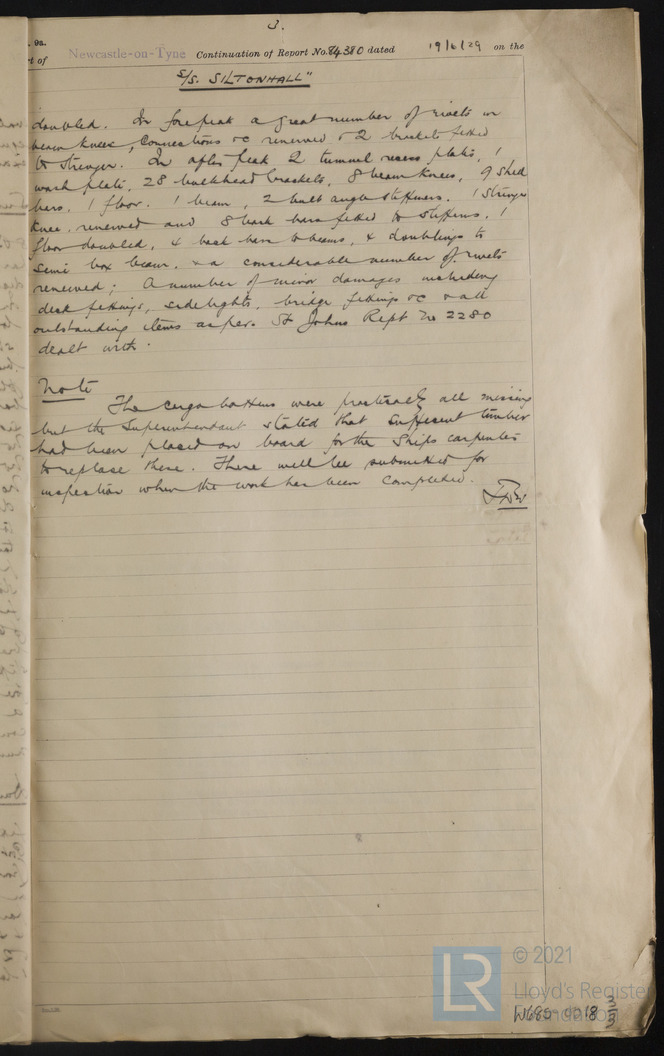 3.
. 9a.
rt of Newcastle-on-Tyne Continuation of Report No. 84380 dated 19/6/29 on the
S/S. SILTONHALL"
doubled. In forepeak a great number of rivets in
beam knees, connections &c renewed & 2 brackets fitted
to stringer. In after peak 2 tunnel recess plates, 1
wash plate, 28 bulkhead brackets, 8 beam knees, 9 shell
bars. 1 floor. 1 beam, 2 bulb angle stiffeners. 1 stringer
knee, renewed and 8 back bars fitted to stiffeners, 1
floor doubled, 4 back bars to beams, & doublings to
semi box beam. & a considerable number of rivets
renewed; A number of minor damages including
deck fittings, sidelights, bridge fittings &c & all
outstanding items as per St Johns Rept No 2280
dealt with.
Note
The cargo battens were practically all missing
but the Superintendent stated that sufficient timber
had been placed on board for the Ships carpenter
to replace these. These will be submitted for
inspection when the work has been completed.
© 2021
LR
Lloyd's Register
Foundation
W685-0218 3/3